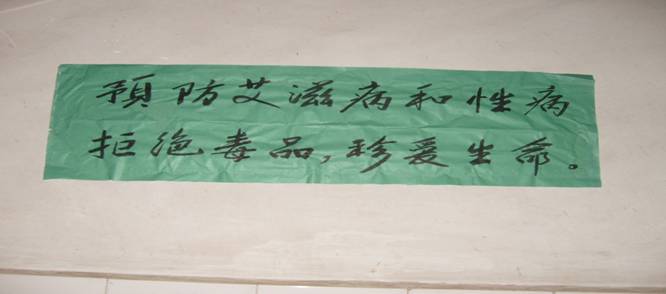 預防艾滋病和性病
拒绝毒品,珍爱生命。